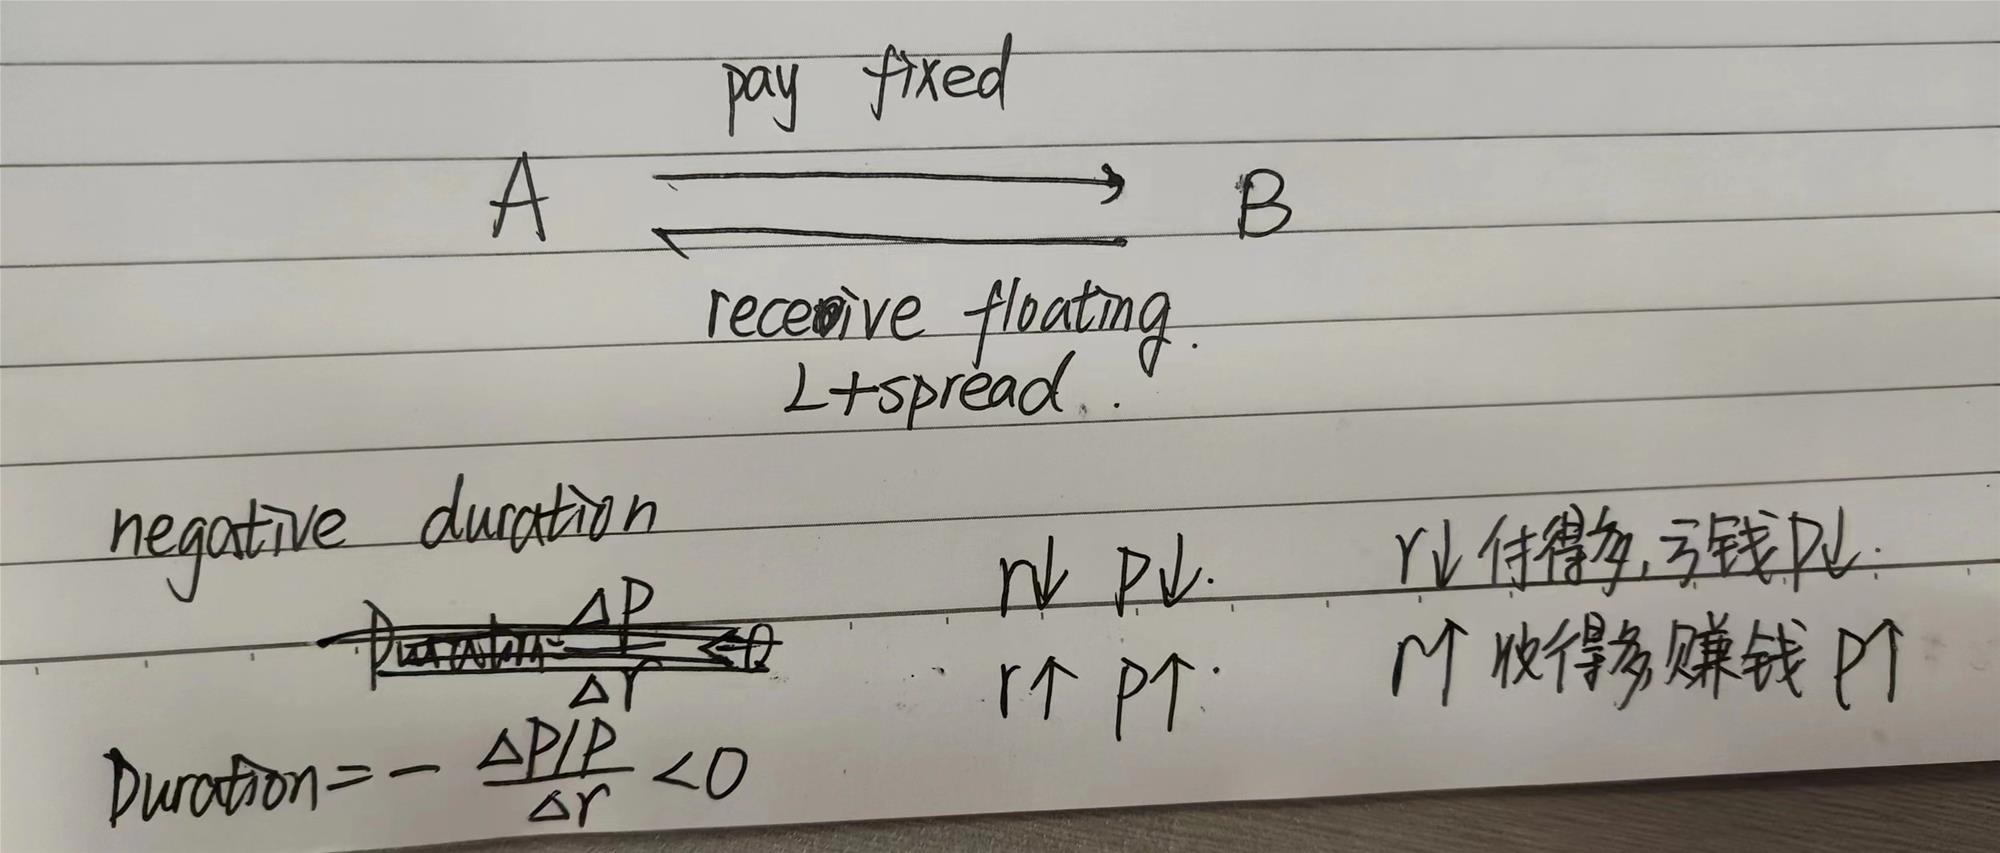 pay fixed
A B
receive floating.
L+spread.
negative duration
r↓ P↓.
r↓付得多,亏钱P↓.
ΔP
Duration= <0
Δr
r↑ P↑.
r↑ 收得多,赚钱 P↑
Duration = - ΔP/P / Δr < 0